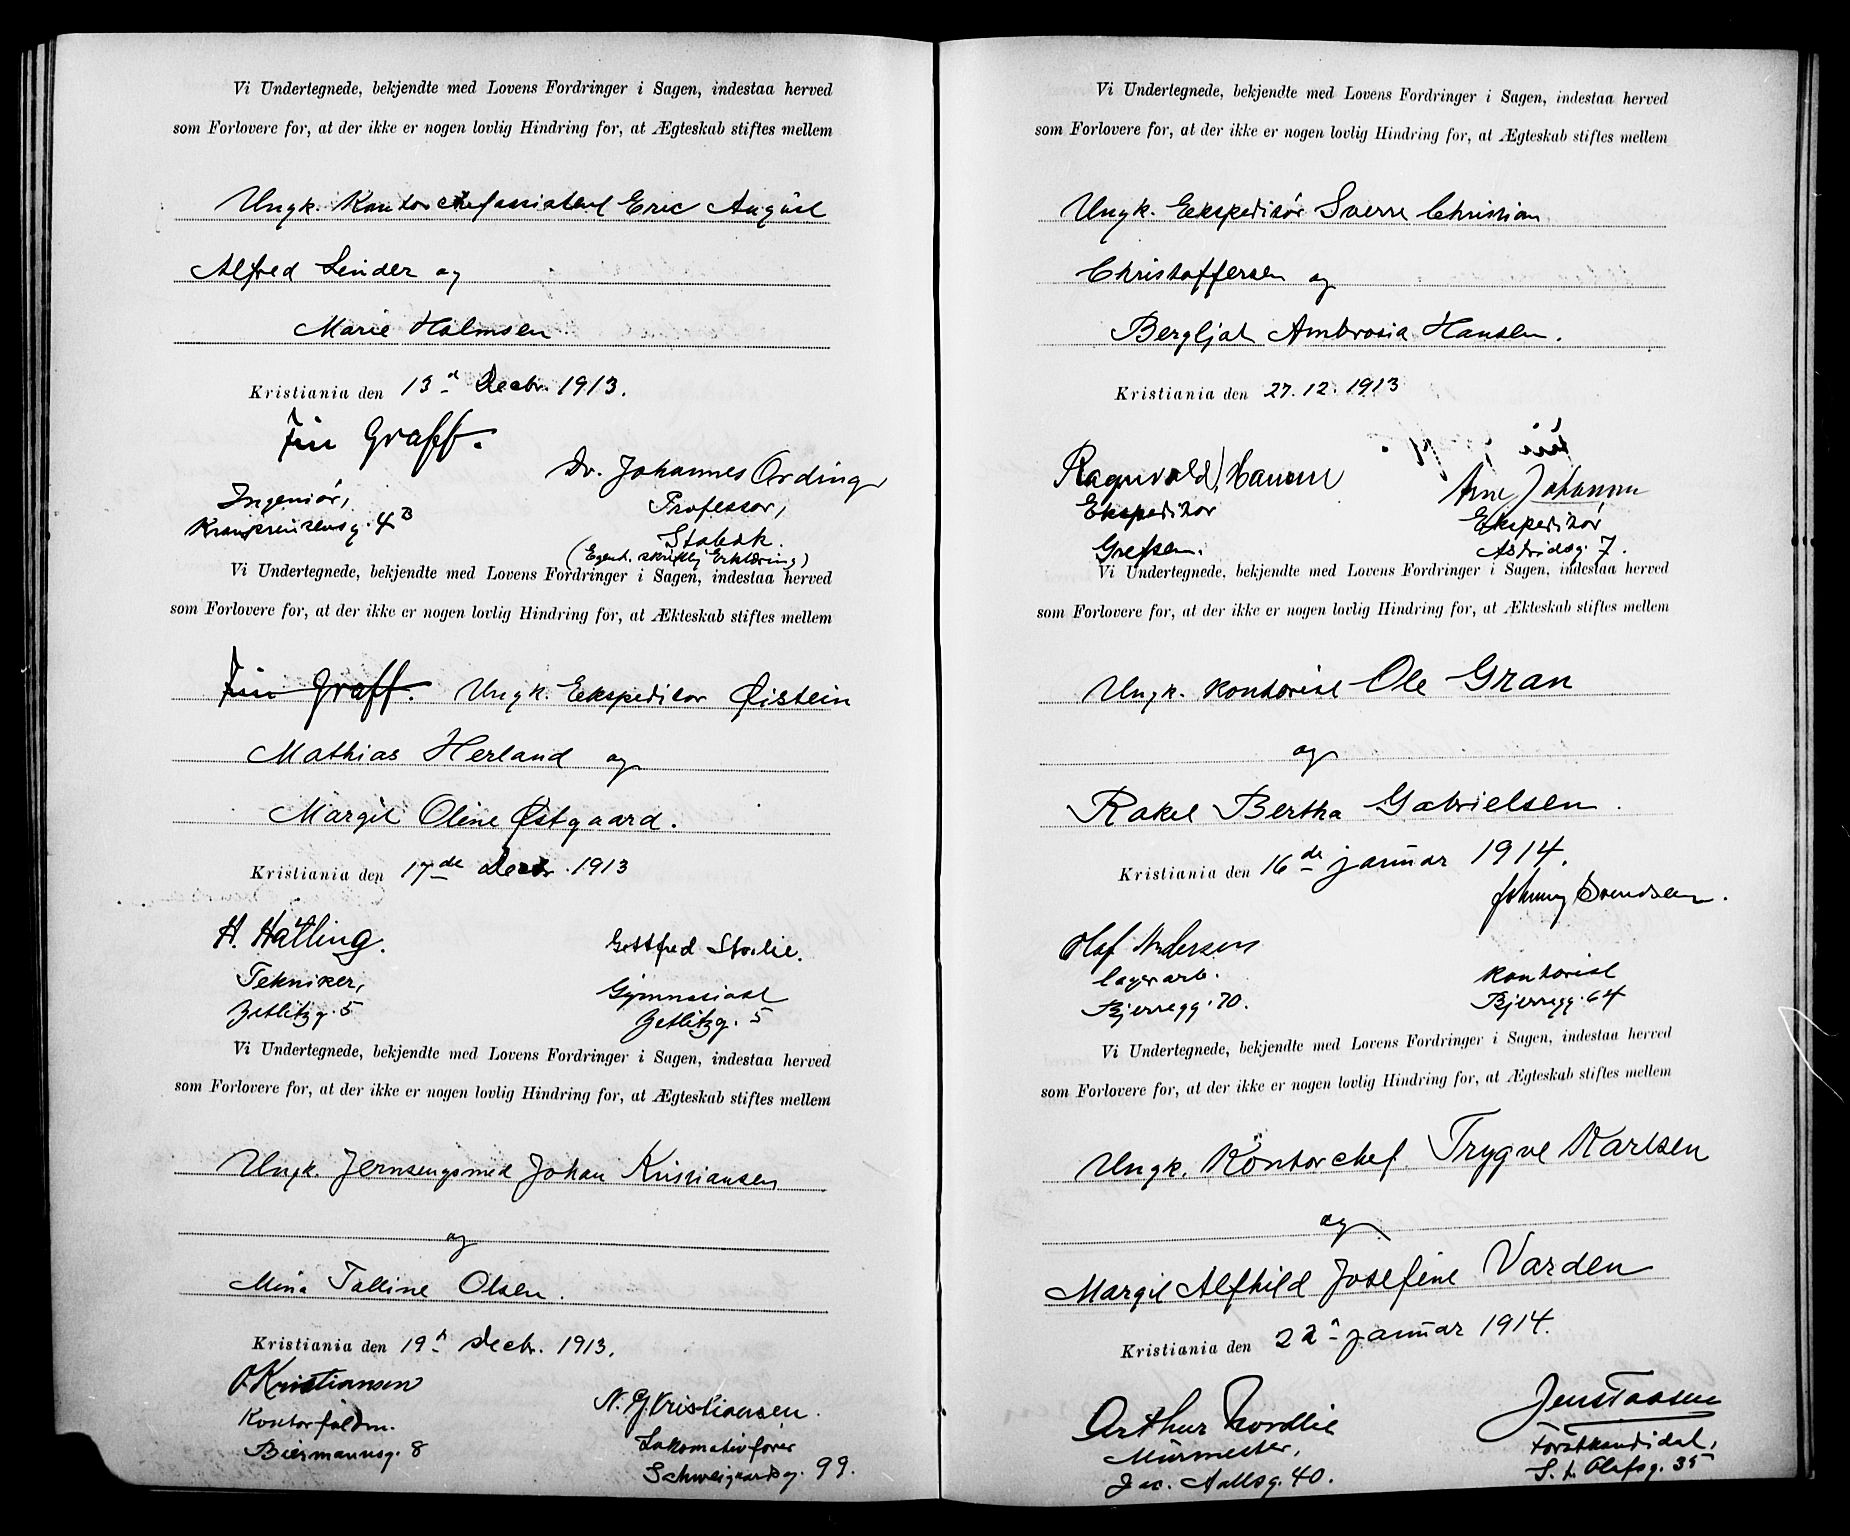 Vi Undertegnede, bekjendte med Lovens Fordringer i Sagen, indestaa herved
som Forlovere for, at der ikke er nogen lovlig Hindring for, at Ægteskab stiftes mellem
Ungk. Kontorchefassistent Eric August
Alfred Linder og
Marie Holmsen
Kristiania den 13d Decbr. 1913.
Finn Graff.
Ingeniør,
4B
Dr. Johannes Ording
Professor,
Stabæk.
(Egenh. skriftlig Erklæring)
Vi Undertegnede, bekjendte med Lovens Fordringer i Sagen, indestaa herved
som Forlovere for, at der ikke er nogen lovlig Hindring for, at Ækteskab stiftes mellem
Finn Graff. Ungk. Ekspeditør Øistein
Mathias Herland og
Margit Oline Østgaard.
Kristiania den 17de Decbr. 1913
H. Hatling.
Tekniker,
Zetlitzg. 5
Gottfred Stølie.
Gymnasiast
Zetlitzg. 5
Vi Undertegnede, bekjendte med Lovens Fordringer i Sagen, indestaa herved
som Forlovere for, at der ikke er nogen lovlig Hindring for, at Ægteskab stiftes mellem
Ungk. Jernsengsmed Johan Kristiansen
og
Mina Talline Olsen.
Kristiania den 19d Decbr. 1913.
O Kristiansen
Kontorfuldm.
Biermannsg. 8
N. G. Kristiansen.
Lokomotivfører
Schweigaardsg. 99.
Vi Undertegnede, bekjendte med Lovens Fordringer i Sagen, indestaa herved
som Forlovere for, at der ikke er nogen lovlig Hindring for, at Ægteskab stiftes mellem
Ungk. Ekspeditør Sverre Christian
Christoffersen og
Bergljot Ambrosia Hansen.
Kristiania den 27.12.1913
Ragnvald Hansen
Ekspeditør
Grefsen.
Arne Johansen
Ekspeditør
Astridsg. 7.
Vi Undertegnede, bekjendte med Lovens Fordringer i Sagen, indestaa herved
som Forlovere for, at der ikke er nogen lovlig Hindring for, at Ækteskab stiftes mellem
Ungk. kontorist Ole Gran
og
Rakel Bertha Gabrielsen.
Kristiania den 16de januar 1914.
Olaf Andersen
lagerarb.
Bjerregg. 70.
Johnny Svendsen.
kontorist
Bjerregg. 64
Vi Undertegnede, bekjendte med Lovens Fordringer i Sagen, indestaa herved
som Forlovere for, at der ikke er nogen lovlig Hindring for, at Ægteskab stiftes mellem
Ungk. Kontorchef Trygve Karlsen
og
Margit Alfhild Josefine Varden
Kristiania den 22d januar 1914.
Arthur Nordlie
Murmester,
Jac. Aallsg. 40.
Jens Taasen
Forstkandidat,
St. Olafsg. 35